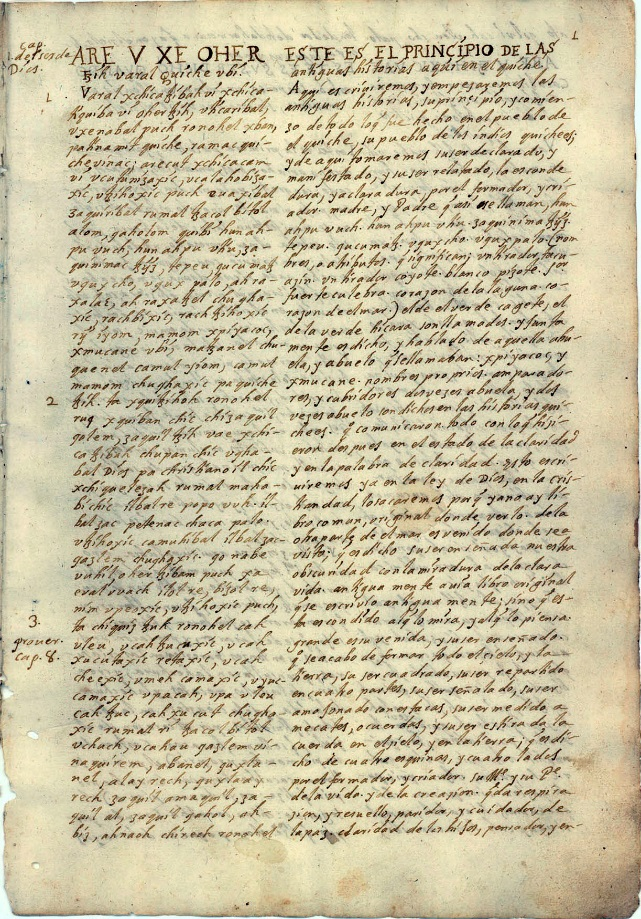 1
Cap.
de ser de
Dios.
1
2
3.
prover.
Cap. 8.
ARE V XE OHER
tzih varal quiche ubi.
Varal xchicatzibah vi xchica-
tiquiba vi oher tzih, vticaribal,
vxenabal puch ronohel xban,
pa tinamit quiche, ramac qui-
che vinac; arecut xchicacam
vi vcutunizaxic, vcalahobiza-
xic, vtzihoxic puch euaxibal
zaquiribal rumal tzacol bitol
alom, qaholom quibi hun ah-
pu vuch, hun ahpu vtiu, za-
quinimac tzyz, tepeu, qucumatz
vqux cho, vqux palo, ah ra-
xa lac, ah raxa tzel chugha-
xic, rachbixic, rachtzihoxic
rij iyom, mamom xpiyacoc,
xmucane ubi, matzanel chu-
quenel camul iyom, camul
mamom chughaxic pa quiche
tzih. ta xquitzihoh ronohel
ruq xquiban chic chi zaquil
qolem, zaquil tzih vae xchi-
catzibah chupan chic vgha-
bal Dios pa christianoil chic
xchiquelezah rumal maha-
bi chic ilbal re popo vuh. il-
bal zac petenac chaca palo.
vtzihoxic camuhibal ilbal zac-
qazlem chughaxic. qo nabe
vuhil, oher tzibam puch xa
eval vvach ilol re, bizol re,
nim vpeoxic, vtzihoxic puch,
ta chiquiz tzuk ronohel cah
uleu, vcah tzucuxic, vcah
xucutaxic retaxic, vcah
cheexic, vmeh camaxic, vyuc
camaxic vpa cah, vpa vleu
cah tzuc, cah xucut chugha-
xic rumal ri tzacol bitol
vchuch, vcahau qazlem vi-
naquirem, abanel, quxla-
nel, alay rech, quxlaay
rech zaquil amaquil, za-
quil al, zaquil qahol, ah-
biz, ahnaoh chirech ronohel
ESTE ES EL PRINCIPIO DE LAS
antiguas historias aqui en el quiche
Aqui escriviremos, y empezaremos las
antiguas historias, su principio, y comien-
zo de todo lo q̃ fue hecho en el pueblo de
el quiche, su pueblo de los indios quichees;
y de aqui tomaremos su ser declarado, y
manifestado, y su ser relatado, la esconde
dura, y aclaradura, por el formador, y cri-
ador madre, y Padre q̃ asi se llaman, hun
ahpu vuch. hun ahpu vtiu. zaquinima tzyz.
tepeu. qucumatz. vqux cho. vqux palo. (nom
bres, o atributos. q̃ significan; vn tirador tacu-
azin. vn tirador coyote. blanco pizote. Sor
fuerte culebra. corazon de la laguna. co-
razon de el mar.) el de el verde cagete, el
de la verde hicara son llamados. y junta
mente es dicho, y hablado de aquella abu-
ela, y abuelo q̃ se llamaban: xpiyacoc, y
xmucane. nombres proprios. amparado-
res, y cubridores dos vezes abuela, y dos
vezes abuelo son dichos en las historias qui-
chees. q̃ comunicaron. todo con lo q̃ hizi-
eron despues en el estado de la claridad
y en la palabra de claridad. Esto escri-
viremos ya en la ley de Dios, en la cris-
tiandad, lo sacaremos porq̃ ya no ay li-
bro comun, original donde verlo. de la
otra parte de el mar es venido donde se a
visto; q̃ es dicho su ser enseñada nuestra
obscuridad con la miradura de la clara
vida. antiguamente avia libro original
q̃ se escrivio antiguamente; sino q̃ es-
ta escondido al q̃ lo mira, y al q̃ lo piensa.
grande es su venida, y su ser enseñado.
q̃ se acabo de formar todo el cielo, y la
tierra, su ser cuadrado, su ser repartido
en cuatro partes, su ser señalado, su ser
amojonado con estacas, su ser medido a
mecates, o cuerdas, y su ser estirada la
cuerda en el cielo, y en la tierra; q̃ es di-
cho de cuatro esquinas, y cuatro lados
por el formador, y criador. su Me. y su Pe.
de la vida. y de la creacion. q̃ da respira
zion, y resuello, paridor, y cuidador, de
la paz. claridad de los hijos, pensador, y en-